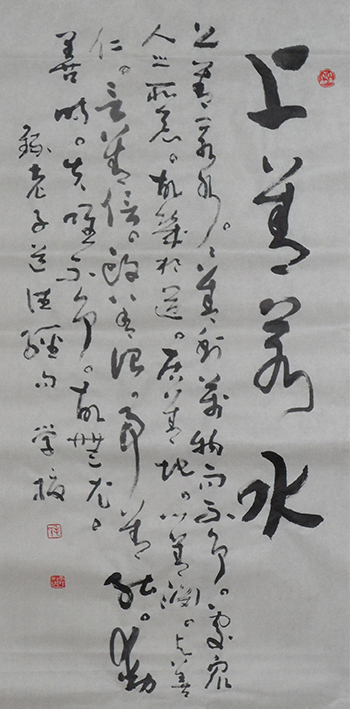 上善若水
上善若水。水善利萬物而不爭。處衆
人之所惡。故幾於道。居善地。心善淵。與善
仁。言善信。政善治。事善能。動
善時。夫唯不爭。故無尤。
錄老子道德經句 学